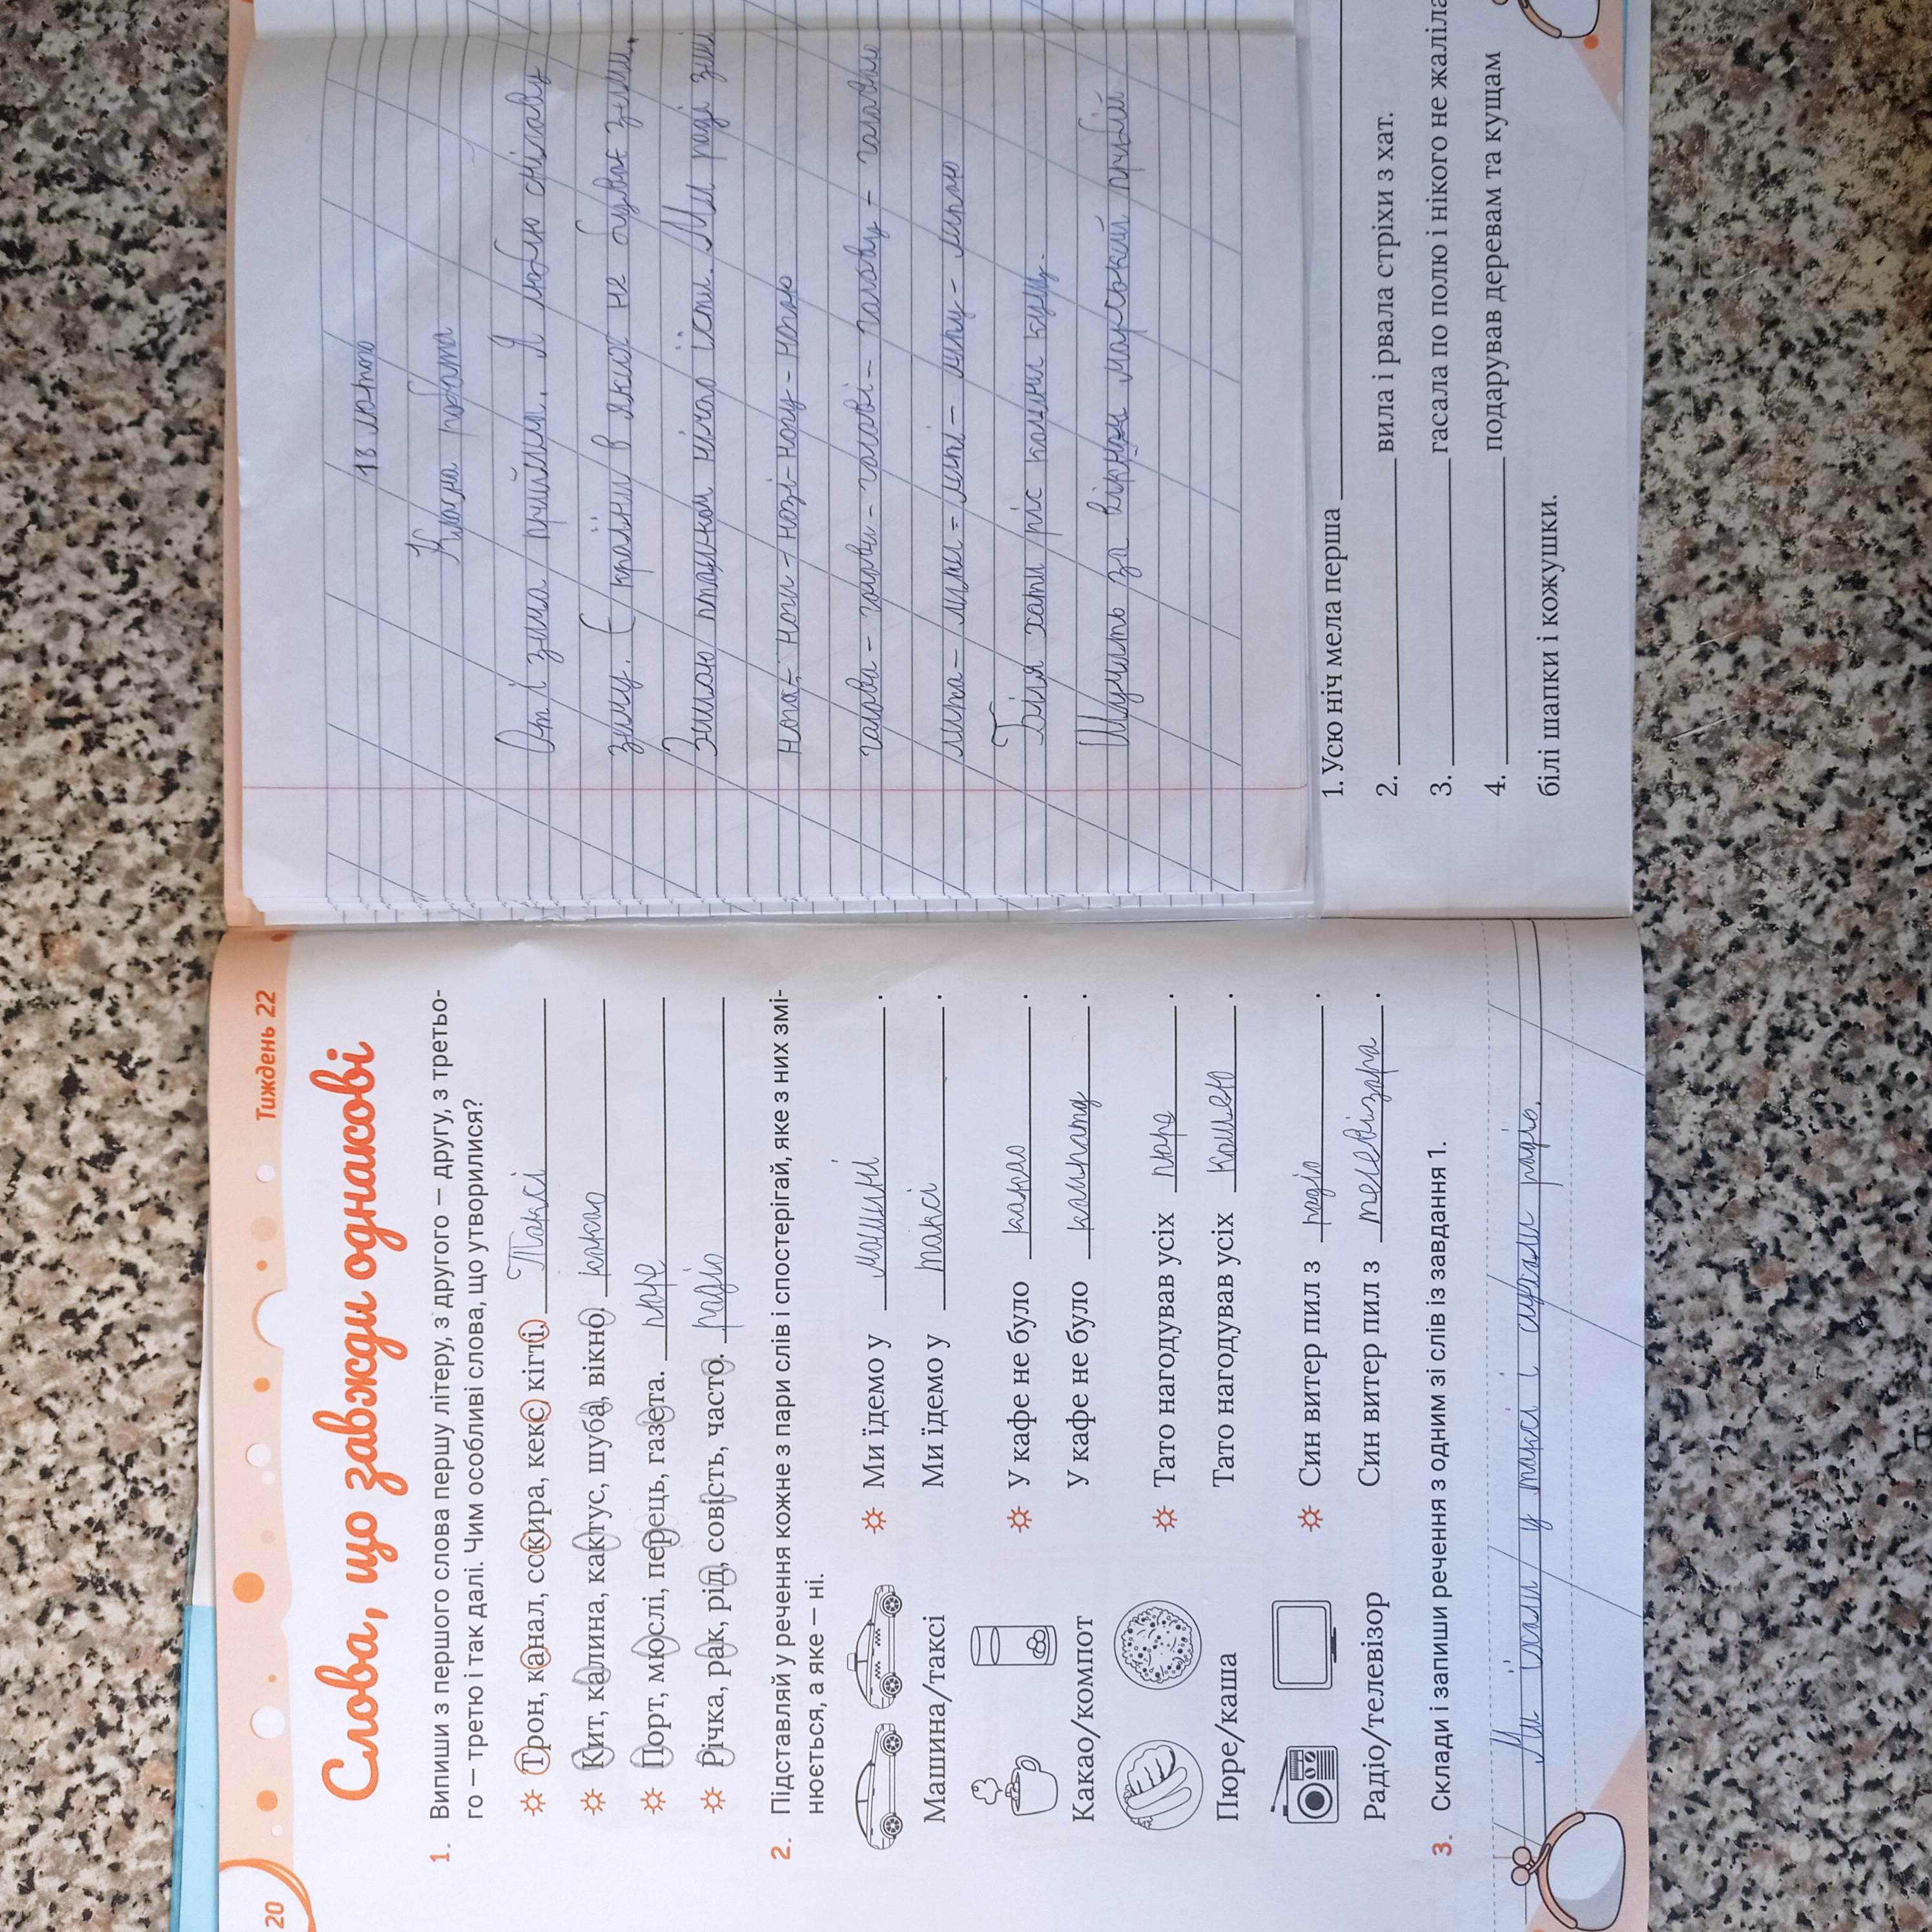 20
Тиждень 22
Слова, що завжди однакові
1. Випиши з першого слова першу літеру, з другого — другу, з третьо-
го — третю і так далі. Чим особливі слова, що утворилися?
Трон, канал, сокира, кекс, кігті. Таксі
Кит, калина, кактус, шуба, вікно. какао
Порт, мюслі, перець, газета. пюре
Річка, рак, рід, совість, часто. радіо
2. Підставляй у речення кожне з пари слів і спостерігай, яке з них змі-
нюється, а яке — ні.
Машина/таксі
Ми їдемо у машині.
Ми їдемо у таксі.
Какао/компот
У кафе не було какао.
У кафе не було компоту.
Пюре/каша
Тато нагодував усіх пюре.
Тато нагодував усіх кашею.
Радіо/телевізор
Син витер пил з радіо.
Син витер пил з телевізора.
3. Склади і запиши речення з одним зі слів із завдання 1.
Ми їхали у таксі і слухали радіо.
18 лютого
Класна робота
От і зима прийшла. Я люблю снігову
зиму. Є країни в яких не буває зими.
Зимою пташкам нічого їсти. Ми раді зимі
нога - ноги - нозі - ногу - ногою
голова - голови - голові - голову - головою
липа - липи - липі - липу - липою
Біля хати ріс калини кущ.
Шумить за вікном морський прибій
1. Усю ніч мела перша
2. вила і рвала стріхи з хат.
3. гасала по полю і нікого не жаліла
4. подарував деревам та кущам
білі шапки і кожушки.